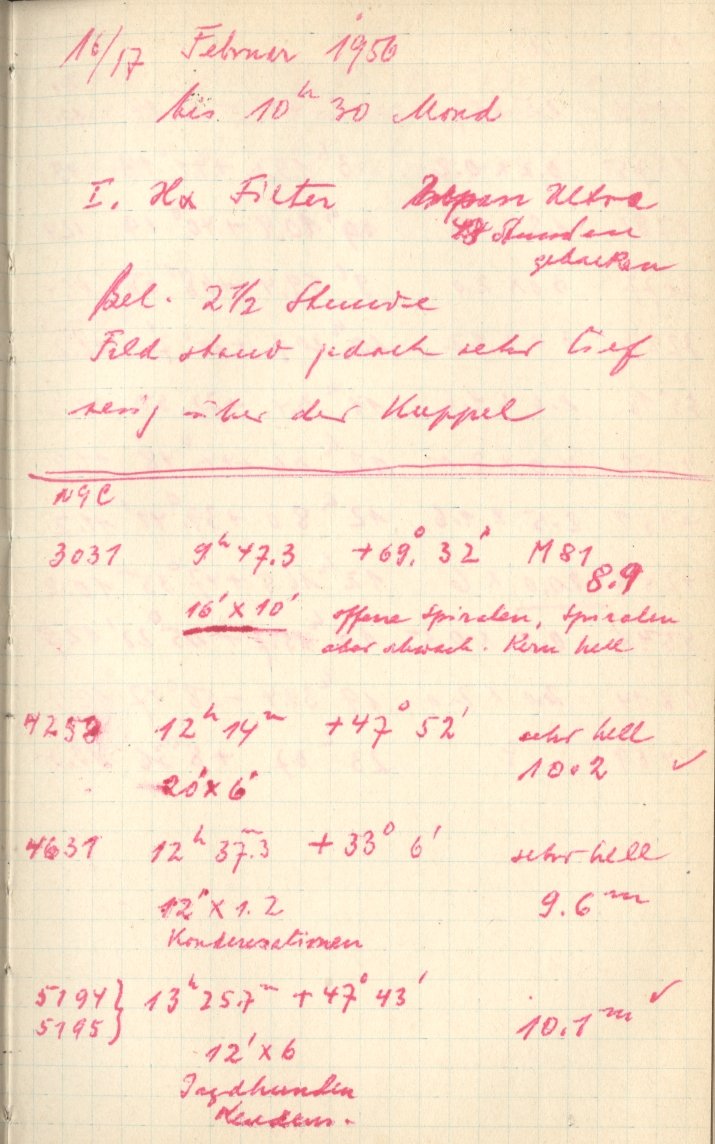 16/17 Februar 1956
bis 10ʰ 30 Mond
I. Hα Filter
Ultra
48 Stunden
gebacken
Bel. 2 1/2 Stunde
Feld stand jedoch sehr tief
über der Kuppel
NGC
3031 9ʰ 47.3 +69.° 32' M81
8.9
16' x 10' offene Spiralen, Spiralen
aber schwach. Kern hell
12ʰ 14ᵐ +47° 52' sehr hell
20' x 6' 10.2 ✓
4631 12ʰ 37.3ᵐ +33° 6' sehr hell
12' x 1.2 9.6ᵐ
Kondensationen
5194 } 13ʰ 25.7ᵐ +47° 43' ✓
5195 } 10.1ᵐ
12' x 6
Jagdhunden